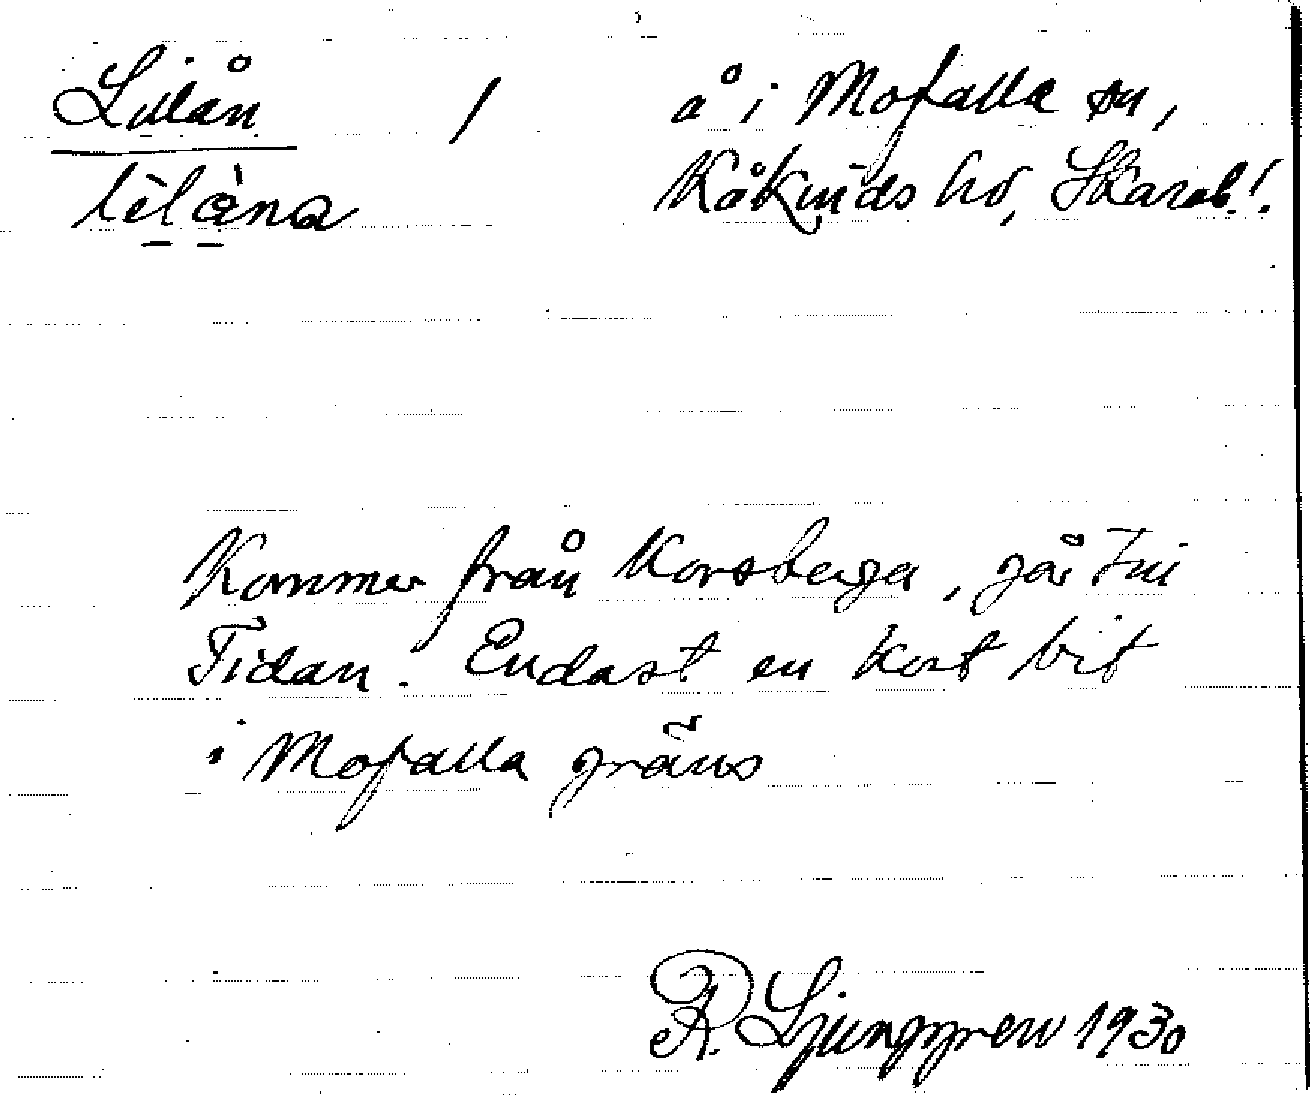 Lillån / å i Mofalla sn,
lìlàna Kåkinds hd, Skarab. l.
Kommer från Korsberga, går till
Tidan. Endast en kort bit
i Mofalla gräns
R. Ljunggren 1930